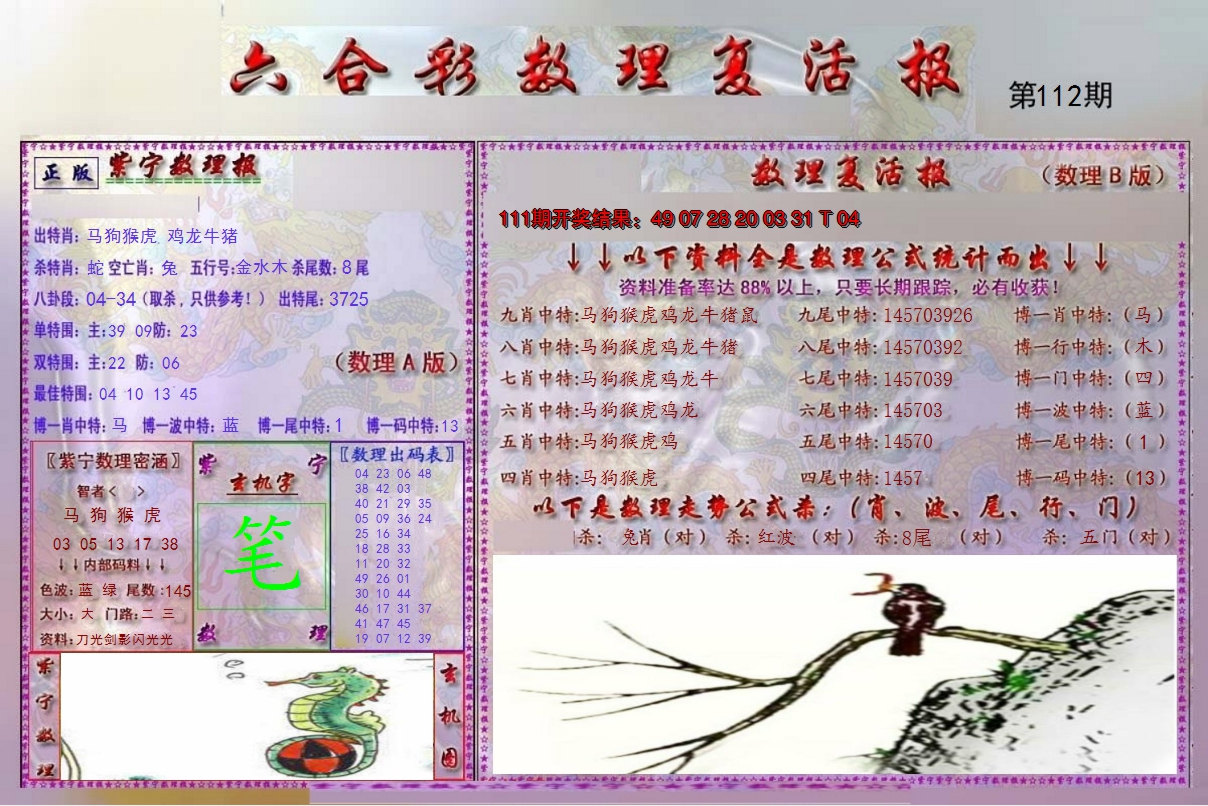 六合彩数理复活报
第112期
正版 紫宁数理报
出特肖: 马狗猴虎 鸡龙牛猪
杀特肖: 蛇 空亡肖: 兔 五行号:金水木 杀尾数: 8 尾
八卦段: 04-34 (取杀, 只供参考! ) 出特尾: 3725
单特围: 主:39 09防: 23
双特围: 主:22 防: 06
(数理 A 版)
最佳特围: 04 10 13 45
博一肖中特: 马 博一波中特: 蓝 博一尾中特: 1 博一码中特:13
〖紫宁数理密涵〗
智者< >
马 狗 猴 虎
03 05 13 17 38
↓↓内部码料↓↓
色波: 蓝 绿 尾数 :145
大小: 大 门路: 二 三
资料: 刀光剑影闪光光
紫 宁
玄机字
笔
数 理
〖数理出码表〗
04 23 06 48
38 42 03
40 21 29 35
05 09 36 24
25 16 34
18 28 33
11 20 32
49 26 01
30 10 44
46 17 31 37
41 47 45
19 07 12 39
紫宁数理
玄机图
数理复活报
(数理 B 版)
111期开奖结果: 49 07 28 20 03 31 T 04
↓↓以下资料全是数理公式统计而出↓↓
资料准备率达 88% 以上, 只要长期跟踪, 必有收获!
九肖中特:马狗猴虎鸡龙牛猪鼠 九尾中特: 145703926 博一肖中特: (马)
八肖中特:马狗猴虎鸡龙牛猪 八尾中特: 14570392 博一行中特: (木)
七肖中特:马狗猴虎鸡龙牛 七尾中特: 1457039 博一门中特: (四)
六肖中特:马狗猴虎鸡龙 六尾中特: 145703 博一波中特: (蓝)
五肖中特:马狗猴虎鸡 五尾中特: 14570 博一尾中特: (1 )
四肖中特:马狗猴虎 四尾中特: 1457 博一码中特: (13)
以下是数理走势公式杀: (肖、波、尾、行、门)
杀: 兔肖 (对) 杀: 红波 (对) 杀: 8尾 (对) 杀: 五门 (对)